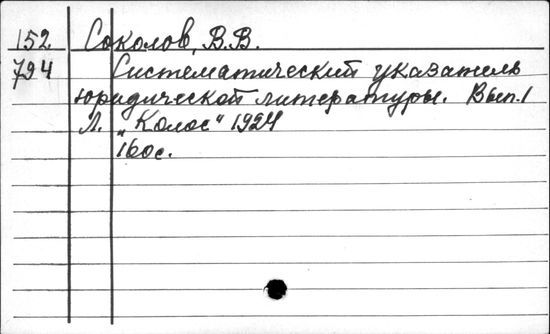 152 Соколов, В.В.
794 Систематический указатель
юридической литературы. Вып. 1
Л. „Колос" 1924
160с.